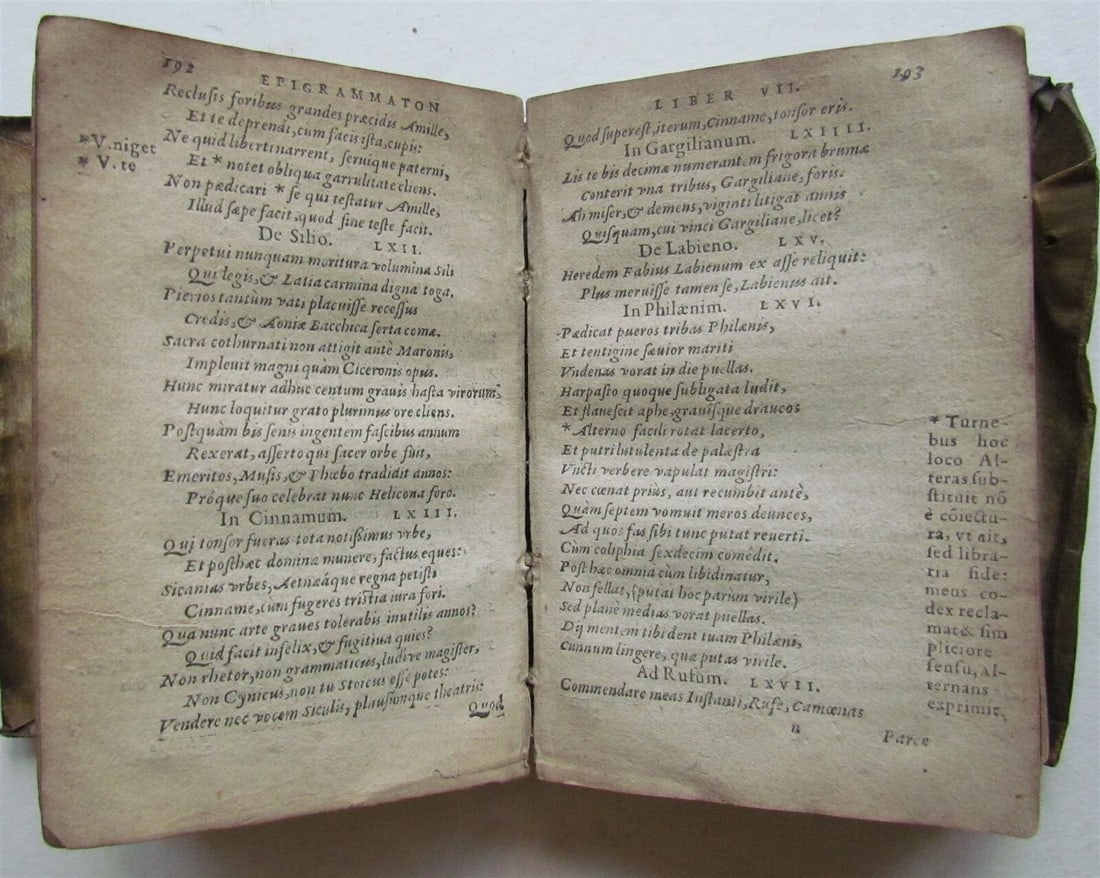 192
EPIGRAMMATON
Reclusis foribus grandes præcidis Amille,
Et te deprendi, cum facis ista, cupis:
Ne quid liberti narrent, seruique paterni,
*V.niget
Et * notet obliqua garrulitate cliens.
* V. te
Non pædicari * se qui testatur Amille,
Illud sæpe facit, quod sine teste facit.
De Silio. LXII.
Perpetui nunquam moritura volumina Sili
Qui legis, & Latia carmina digna toga,
Pierios tantùm vati placuisse recessus
Credis, & Aoniæ Bacchica serta comæ.
Sacra cothurnati non attigit antè Maronis,
Impleuit magni quàm Ciceronis opus.
Hunc miratur adhuc centum grauis hasta virorum,
Hunc loquitur grato plurimus ore cliens.
Postquàm bis senis ingentem fascibus annum
Rexerat, asserto qui sacer orbe fuit,
Emeritos, Musis, & Phœbo tradidit annos:
Próque suo celebrat nunc Helicona foro.
In Cinnamum. LXIII.
Qui tonsor fueras tota notissimus vrbe,
Et posthæc dominæ munere, factus eques:
Sicanias vrbes, Aetnæáque regna petisti
Cinname, cùm fugeres tristia iura fori.
Qua nunc arte graues tolerabis inutilis annos?
Quid facit infelix, & fugitiua quies?
Non rhetor, non grammaticus, ludive magister,
Non Cynicus, non tu Stoicus esse potes:
Vendere nec vocem Siculis, plausúmque theatris:
Quod
193
LIBER VII.
Quod superest, iterum, Cinname, tonsor eris.
In Gargilianum. LXIIII.
Lis te bis decimæ numerantem frigora brumæ
Conterit vna tribus, Gargiliane, foris.
Ah miser, & demens, viginti litigat annis
Quisquam, cui vinci Gargiliane, licet?
De Labieno. LXV.
Heredem Fabius Labienum ex asse reliquit:
Plus meruisse tamen se, Labienus ait.
In Philænim. LXVI.
Pædicat pueros tribas Philænis,
Et tentigine sæuior mariti
Vndenas vorat in die puellas.
Harpasto quoque subligata ludit,
Et flauescit aphe, grauisque draucos
* Alterno facili rotat lacerto,
Et putri lutulenta de palæstra
Vncti verbere vapulat magistri:
Nec cœnat priùs, aut recumbit antè,
Quàm septem vomuit meros deunces,
Ad quos fas sibi tunc putat reuerti.
Cùm coliphia sexdecim comêdit.
Post hæc omnia cùm libidinatur,
Non fellat, (putat hoc parùm virile)
Sed planè medias vorat puellas.
Dij mentem tibi dent tuam Philæni,
Cunnum lingere, quæ putas virile.
Ad Rufum. LXVII.
Commendare meas Instanti, Rufe, Camœnas
n
Parce
* Turne-
bus hoc
loco Al-
teras sub-
stituit nō
è cōiectu-
ra, vt ait,
sed libra-
ria fide:
meus co-
dex recla-
mat & sim
pliciore
sensu, al-
ternans
exprimit,